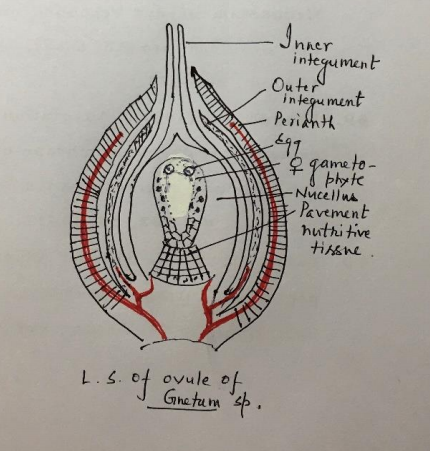 Inner
integument
Outer
integument
Perianth
Egg
♀ gameto-
phyte
Nucellus
Pavement
nutritive
tissue.
L. S. of ovule of
Gnetum sp.